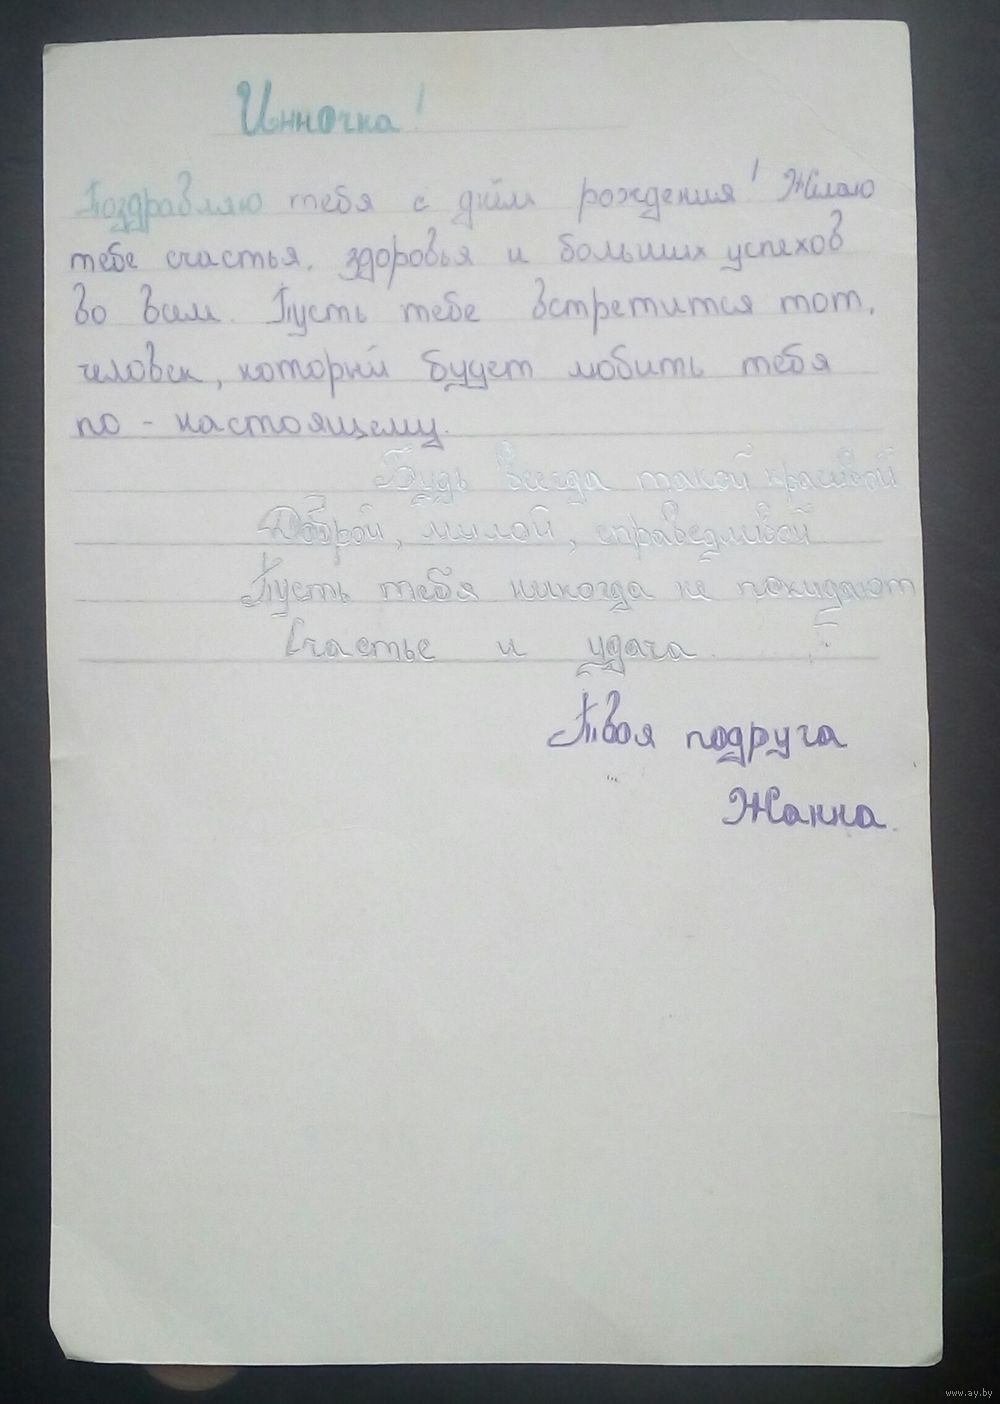 Инночка!
Поздравляю тебя с днём рождения! Желаю
тебе счастья, здоровья и больших успехов
во всём. Пусть тебе встретится тот,
человек, который будет любить тебя
по - настоящему.
Будь всегда такой красивой
Доброй, милой, справедливой
Пусть тебя никогда не покидают
Счастье и удача.
Твоя подруга
Жанна.
www.ay.by